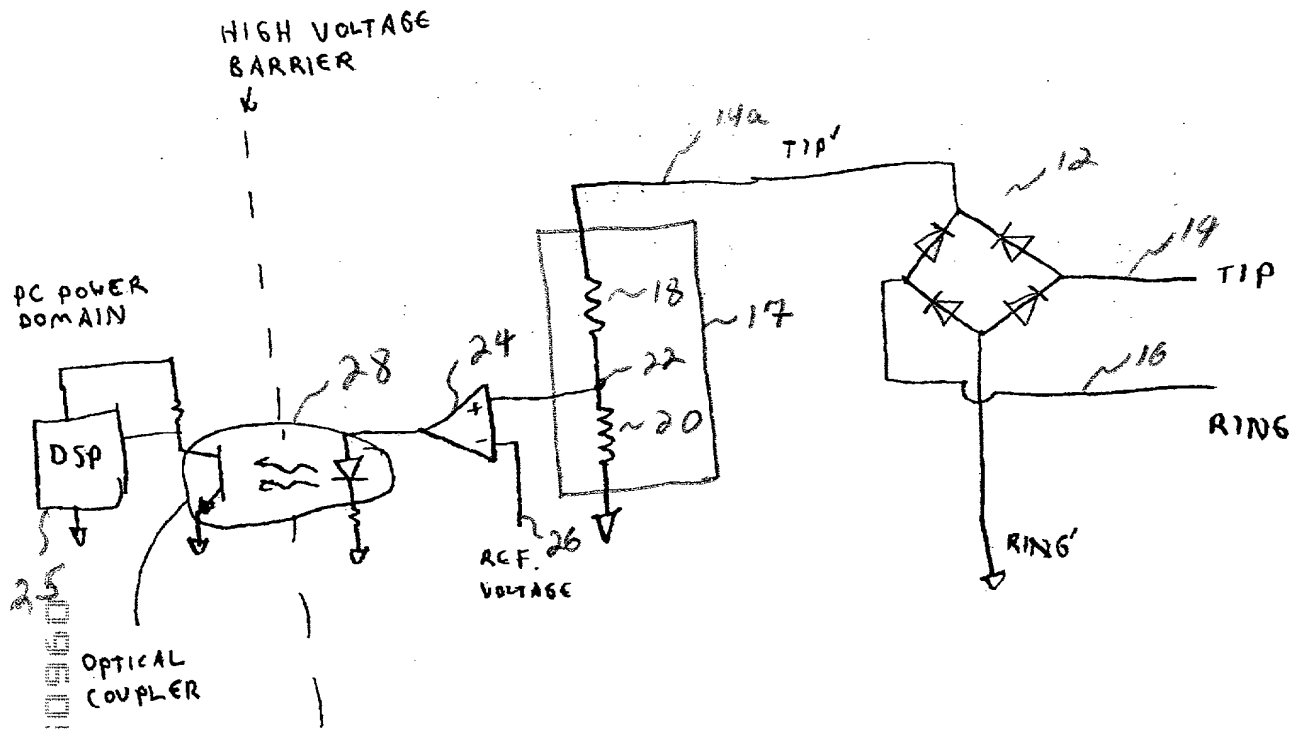 HIGH VOLTAGE
BARRIER
14a
TIP'
12
14
TIP
PC POWER
DOMAIN
18
17
16
28
24
22
+
-
20
RING
DSP
26
REF.
VOLTAGE
RING'
25
OPTICAL
COUPLER